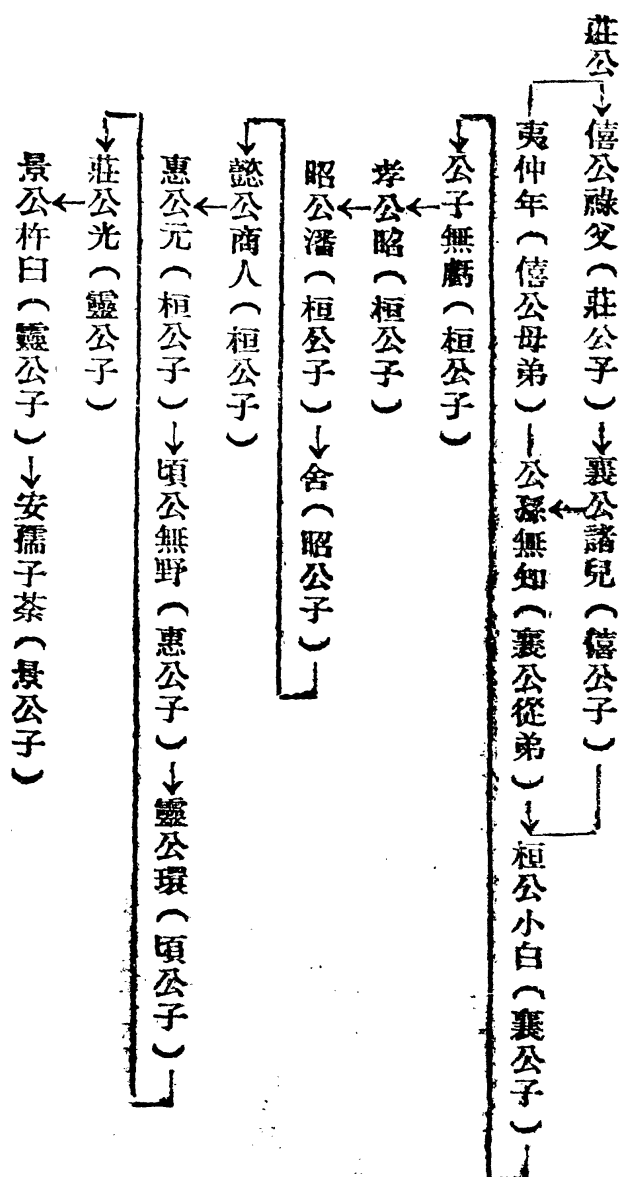 莊公
僖公祿父(莊公子)→襄公諸兒(僖公子)
夷仲年(僖公母弟)—公孫無知(襄公從弟)→桓公小白(襄公子)
公子無虧(桓公子)
孝公昭(桓公子)
昭公潘(桓公子)→舍(昭公子)
懿公商人(桓公子)
惠公元(桓公子)→頃公無野(惠公子)→靈公環(頃公子)
莊公光(靈公子)
景公杵臼(靈公子)→安孺子荼(景公子)